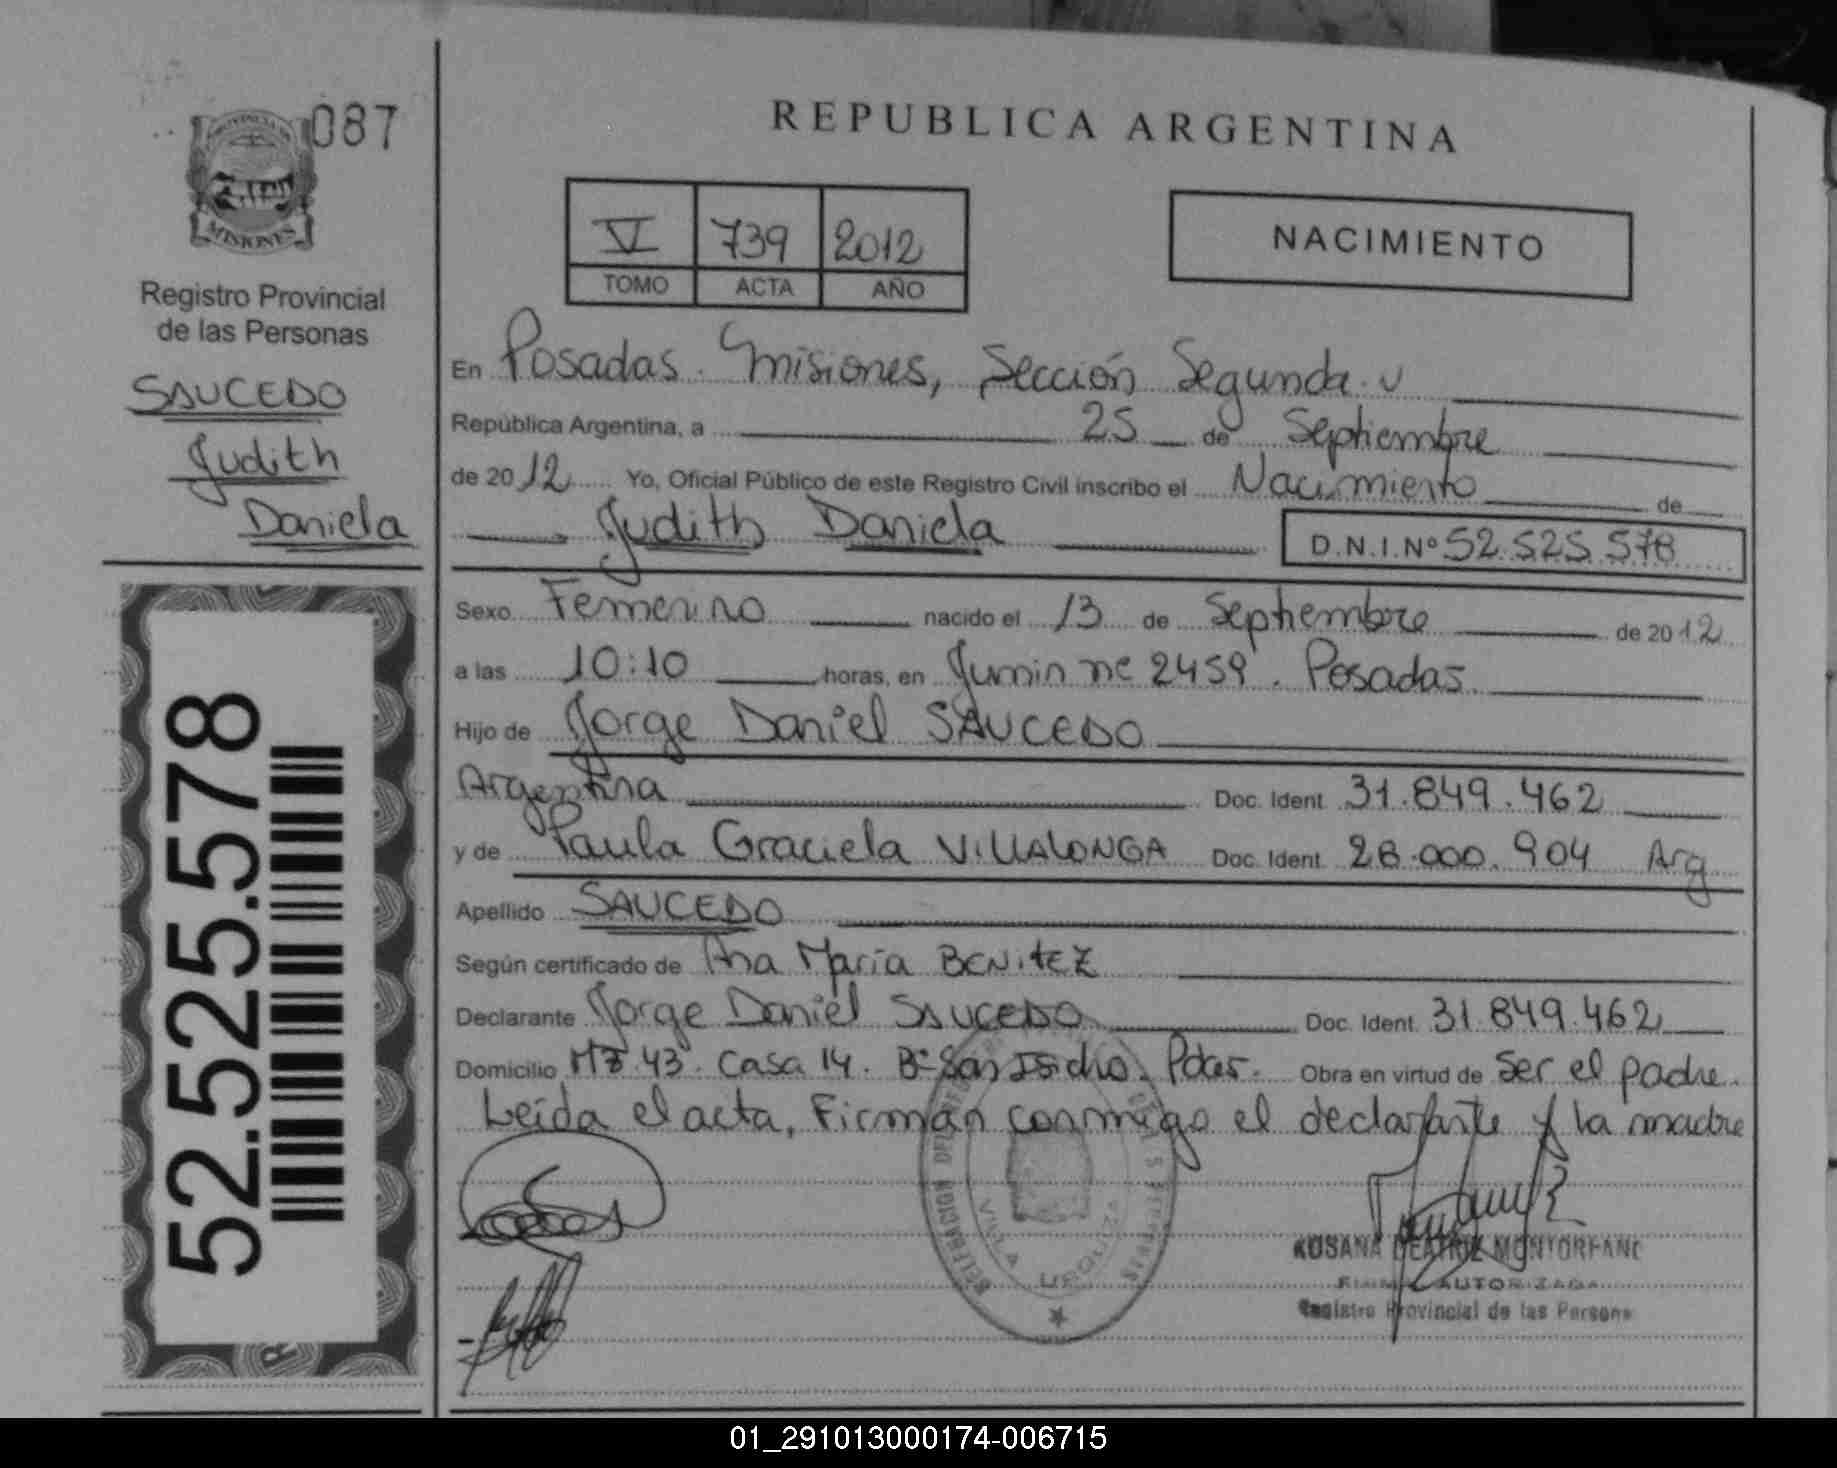 087
PROVINCIA DE
MISIONES
Registro Provincial
de las Personas
SAUCEDO
Judith
Daniela
52.525.578
REPUBLICA ARGENTINA
V 739 2012
TOMO ACTA AÑO
NACIMIENTO
En Posadas. Misiones, Sección Segunda.
República Argentina, a 25 de Septiembre
de 2012 Yo, Oficial Público de este Registro Civil inscribo el Nacimiento de
Judith Daniela D.N.I.Nº 52.525.578
Sexo Femenino nacido el 13 de Septiembre de 2012
a las 10:10 horas, en Junin nº 2459. Posadas
Hijo de Jorge Daniel SAUCEDO
Argentina Doc. Ident. 31.849.462
y de Paula Graciela VILLALONGA Doc. Ident. 28.000.904 Arg
Apellido SAUCEDO
Según certificado de Ana María BENITEZ
Declarante Jorge Daniel SAUCEDO Doc. Ident. 31.849.462
Domicilio Mz 43. Casa 14. Bº San Isidro. Pdas. Obra en virtud de ser el padre.
Leída el acta, Firman conmigo el declarante y la madre
DELEGACION
VILLA URQUIZA
ROSANA BEATRIZ MONTORFANO
FIRMA AUTORIZADA
Registro Provincial de las Persona
01_291013000174-006715